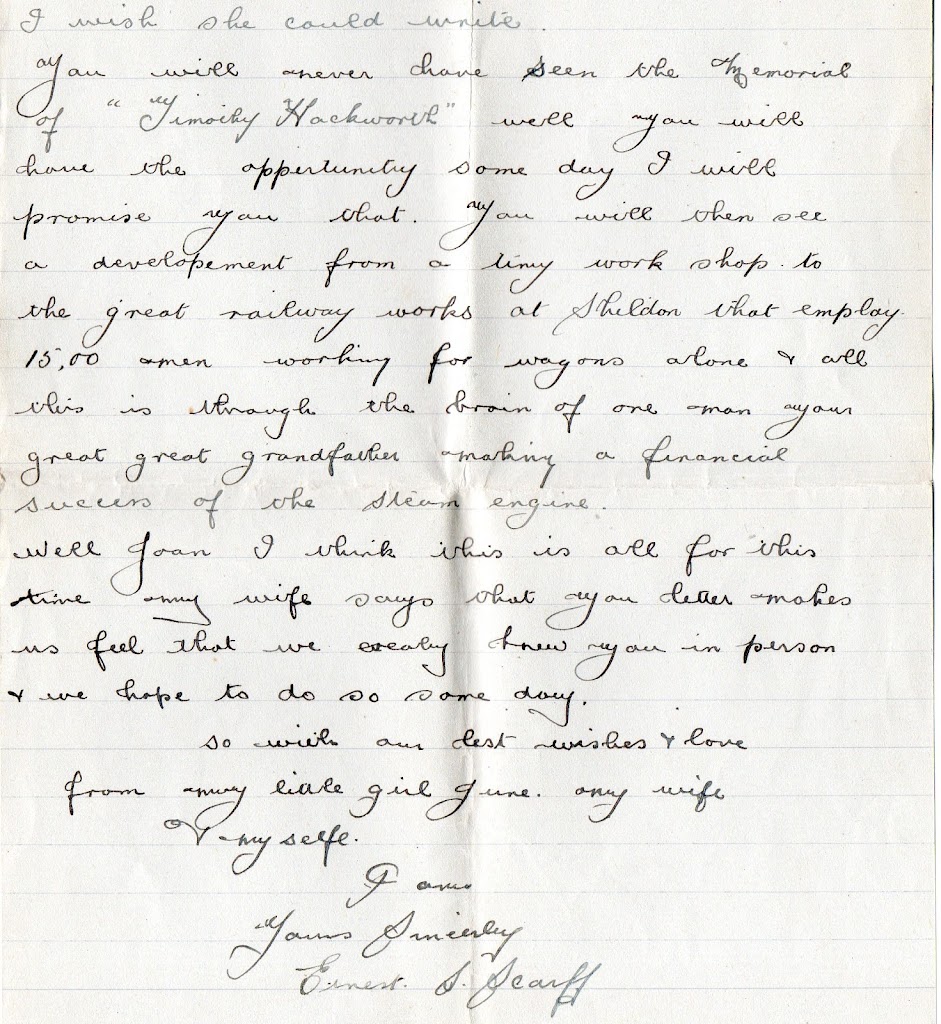 I wish she could write.
You will never have seen the Memorial
of "Timothy Hackworth" well you will
have the oppertunity some day I will
promise you that. You will then see
a developement from a tiny work shop. to
the great railway works at Sheldon that employ.
15,00 men working for wagons alone & all
this is through the brain of one man your
great great grandfather making a financial
success of the steam engine.
Well Joan I think this is all for this
time my wife says that you letter makes
us feel that we realy knew you in person
& we hope to do so some day.
so with our best wishes & love
from my little girl June. my wife
& my selfe.
I am
Yours Sincerley
Ernest. S. Scarff